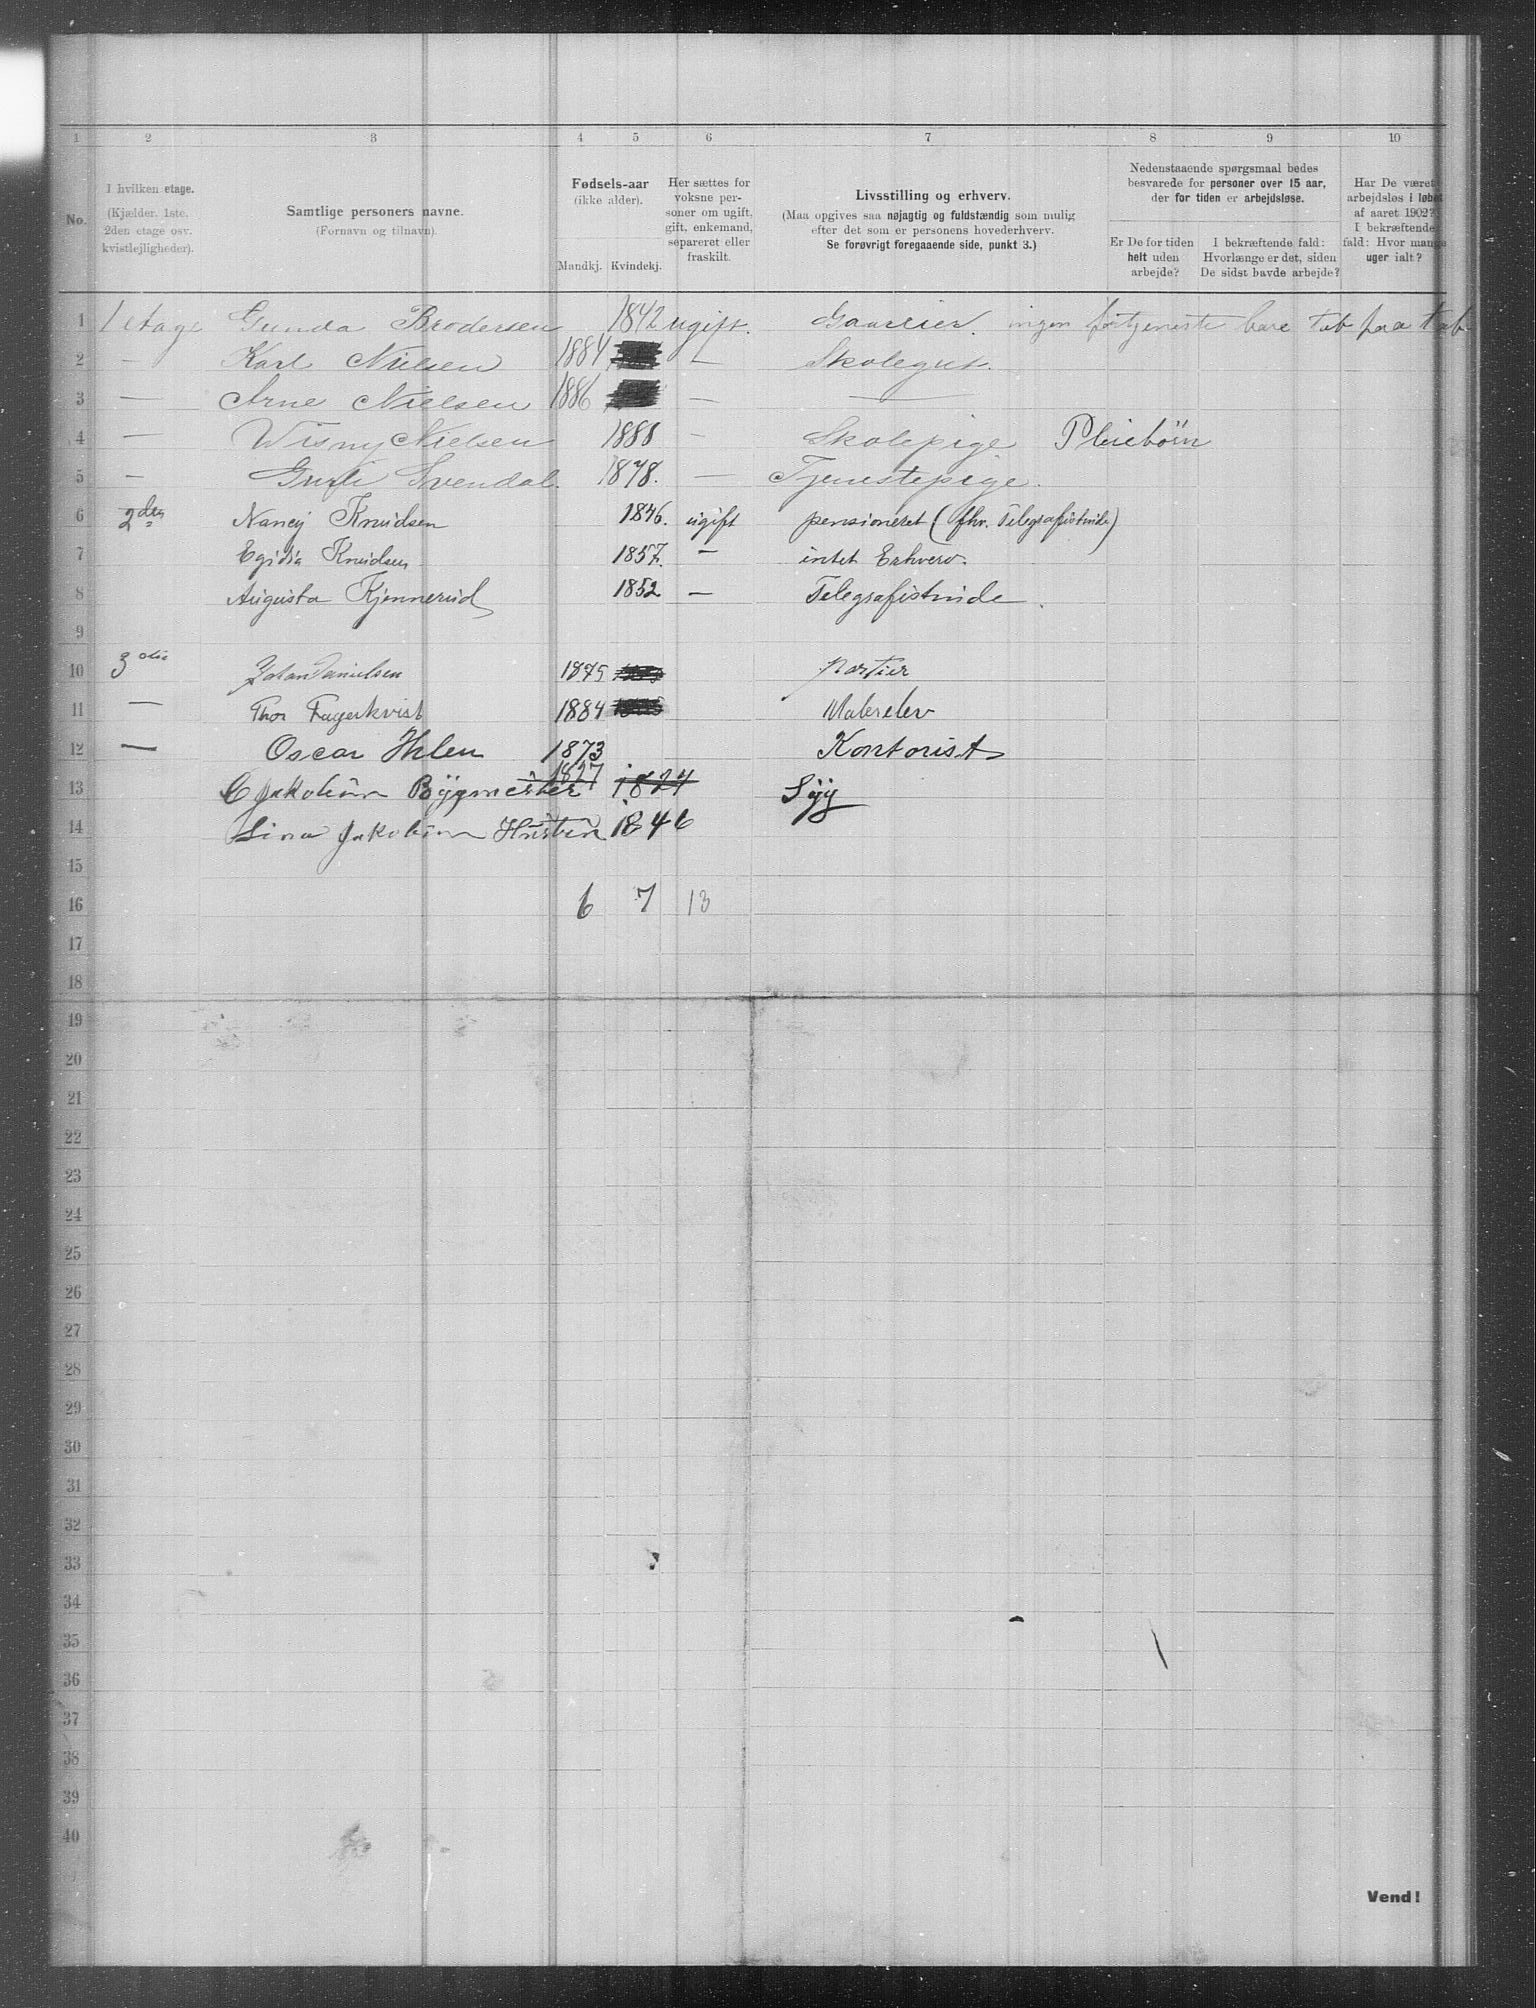 1 2 3 4 5 6 7 8 9 10
No.
I hvilken etage.
(Kjælder. 1ste.
2den etage osv.
kvistlejligheder).
Samtlige personers navne.
(Fornavn og tilnavn).
Fødsels-aar
(ikke alder).
Mandkj. Kvindekj.
Her sættes for
voksne per-
soner om ugift,
gift, enkemand,
separeret eller
fraskilt.
Livsstilling og erhverv.
(Maa opgives saa nøjagtig og fuldstændig som mulig
efter det som er personens hovederhverv.
Se forøvrigt foregaaende side, punkt 3.)
Nedenstaaende spørgsmaal bedes
besvarede for personer over 15 aar,
der for tiden er arbejdsløse.
Er De for tiden
helt uden
arbejde?
I bekræftende fald:
Hvorlænge er det, siden
De sidst havde arbejde?
Har De været
arbejdsløs i løbet
af aaret 1902?
I bekræftende
fald: Hvor mange
uger ialt?
1 1 etage Gunda Brodersen 1842 ugift. Gaareier. ingen fortjeneste bare tab paa tab
2 — Karl Nielsen 1884 — Skolegut.
3 — Arne Nielsen 1886 — —
4 — Wisny Nielsen 1888 — Skolepige Pleiebörn
5 — Svendal. 1878. — Tjenestepige.
6 2den Nancy Knudsen 1846. ugift pensioneret (fhv. Telegrafistinde)
7 Egidia Knudsen 1857. — intet Erhverv.
8 Augusta Kjennerud 1852 — Telegrafistinde.
9
10 3die Johan Danielsen 1875 Portier
11 — Thor Fagerkvist 1884 Malerelev
12 — Oscar Ihlen 1873 Kontorist
1827
13 C Jakobsen Bygmester 1824 Syg
14 Lina Jakobsen Hustru 1846
15
16 6 7 13
17
18
19
20
21
22
23
24
25
26
27
28
29
30
31
32
33
34
35
36
37
38
39
40
Vend!